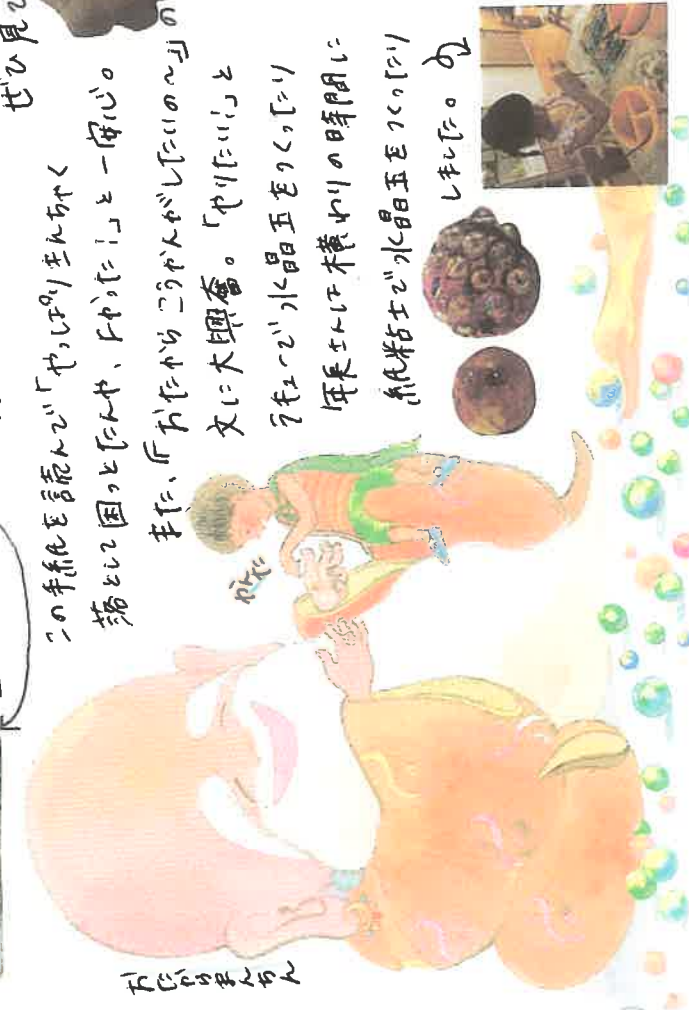 ぜひ見て
この手紙を読んで「やっぱりきんちゃく
落として困っとたんや、よかった！」と一安心。
また、『おたからこうかんがしたいの〜』の
文に大興奮。「やりたい！」と
ラキューで水晶玉をつくったり
年長さんは横わりの時間に
紙粘土で水晶玉をつくったり
しました。